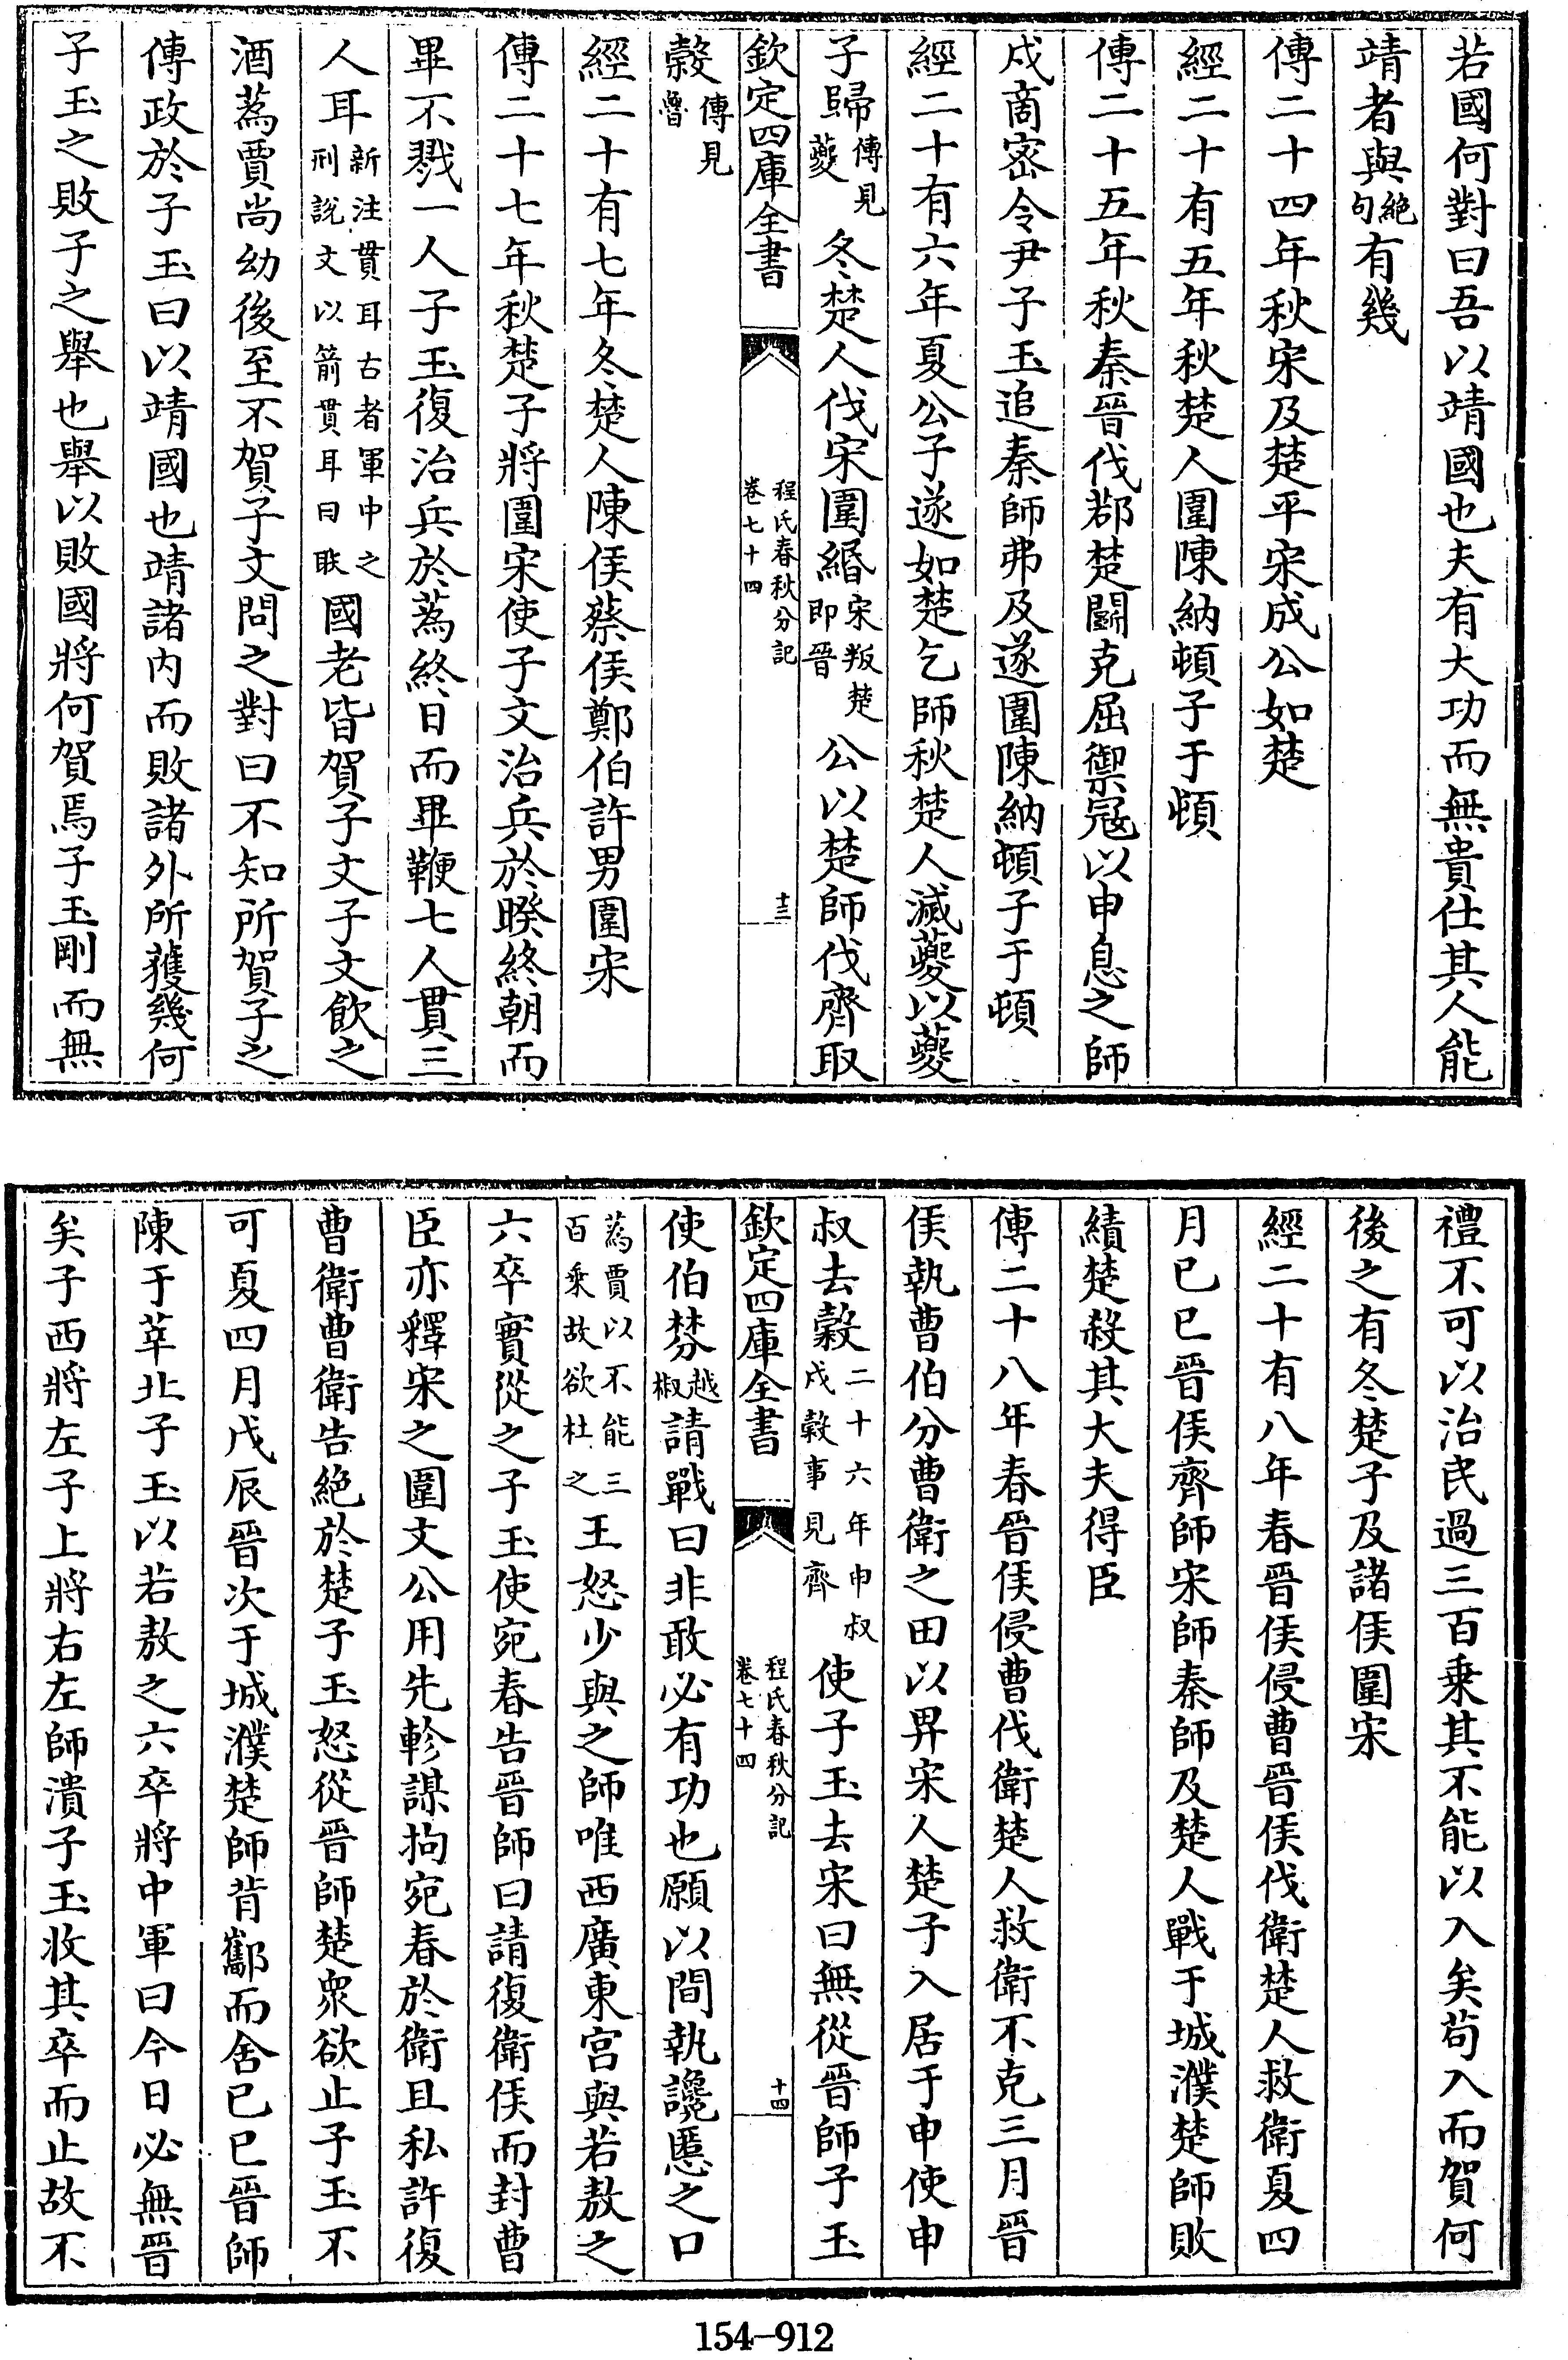 若國何對曰吾以靖國也夫有大功而無貴仕其人能
靖者與絕句有幾
傳二十四年秋宋及楚平宋成公如楚
經二十有五年秋楚人圍陳納頓子于頓
傳二十五年秋秦晉伐鄀楚鬭克屈禦冦以申息之師
戍商密令尹子玉追秦師弗及遂圍陳納頓子于頓
經二十有六年夏公子遂如楚乞師秋楚人滅夔以夔
子歸傳見夔冬楚人伐宋圍緡宋叛楚即晉公以楚師伐齊取
欽定四庫全書
程氏春秋分記
卷七十四
十三
穀傳見魯
經二十有七年冬楚人陳侯蔡侯鄭伯許男圍宋
傳二十七年秋楚子將圍宋使子文治兵於睽終朝而
畢不戮一人子玉復治兵於蒍終日而畢鞭七人貫三
人耳新注貫耳古者軍中之刑說文以箭貫耳曰聅國老皆賀子文子文飲之
酒蒍賈尚幼後至不賀子文問之對曰不知所賀子之
傳政於子玉曰以靖國也靖諸内而敗諸外所獲幾何
子玉之敗子之舉也舉以敗國將何賀焉子玉剛而無
禮不可以治民過三百乗其不能以入矣苟入而賀何
後之有冬楚子及諸侯圍宋
經二十有八年春晉侯侵曹晉侯伐衛楚人救衛夏四
月已巳晉侯齊師宋師秦師及楚人戰于城濮楚師敗
績楚殺其大夫得臣
傳二十八年春晉侯侵曹伐衛楚人救衛不克三月晉
侯執曹伯分曹衛之田以畀宋人楚子入居于申使申
叔去穀二十六年申叔戍穀事見齊使子玉去宋曰無從晉師子玉
欽定四庫全書
程氏春秋分記
卷七十四
十四
使伯棼越椒請戰曰非敢必有功也願以間執讒慝之口
蒍賈以不能三百乗故欲杜之王怒少與之師唯西廣東宫與若敖之
六卒實從之子玉使宛春告晉師曰請復衛侯而封曹
臣亦釋宋之圍文公用先軫謀拘宛春於衛且私許復
曹衛曹衛告絕於楚子玉怒從晉師楚衆欲止子玉不
可夏四月戊辰晉次于城濮楚師背酅而舍已巳晉師
陳于莘北子玉以若敖之六卒將中軍曰今日必無晉
矣子西將左子上將右左師潰子玉收其卒而止故不
154-912